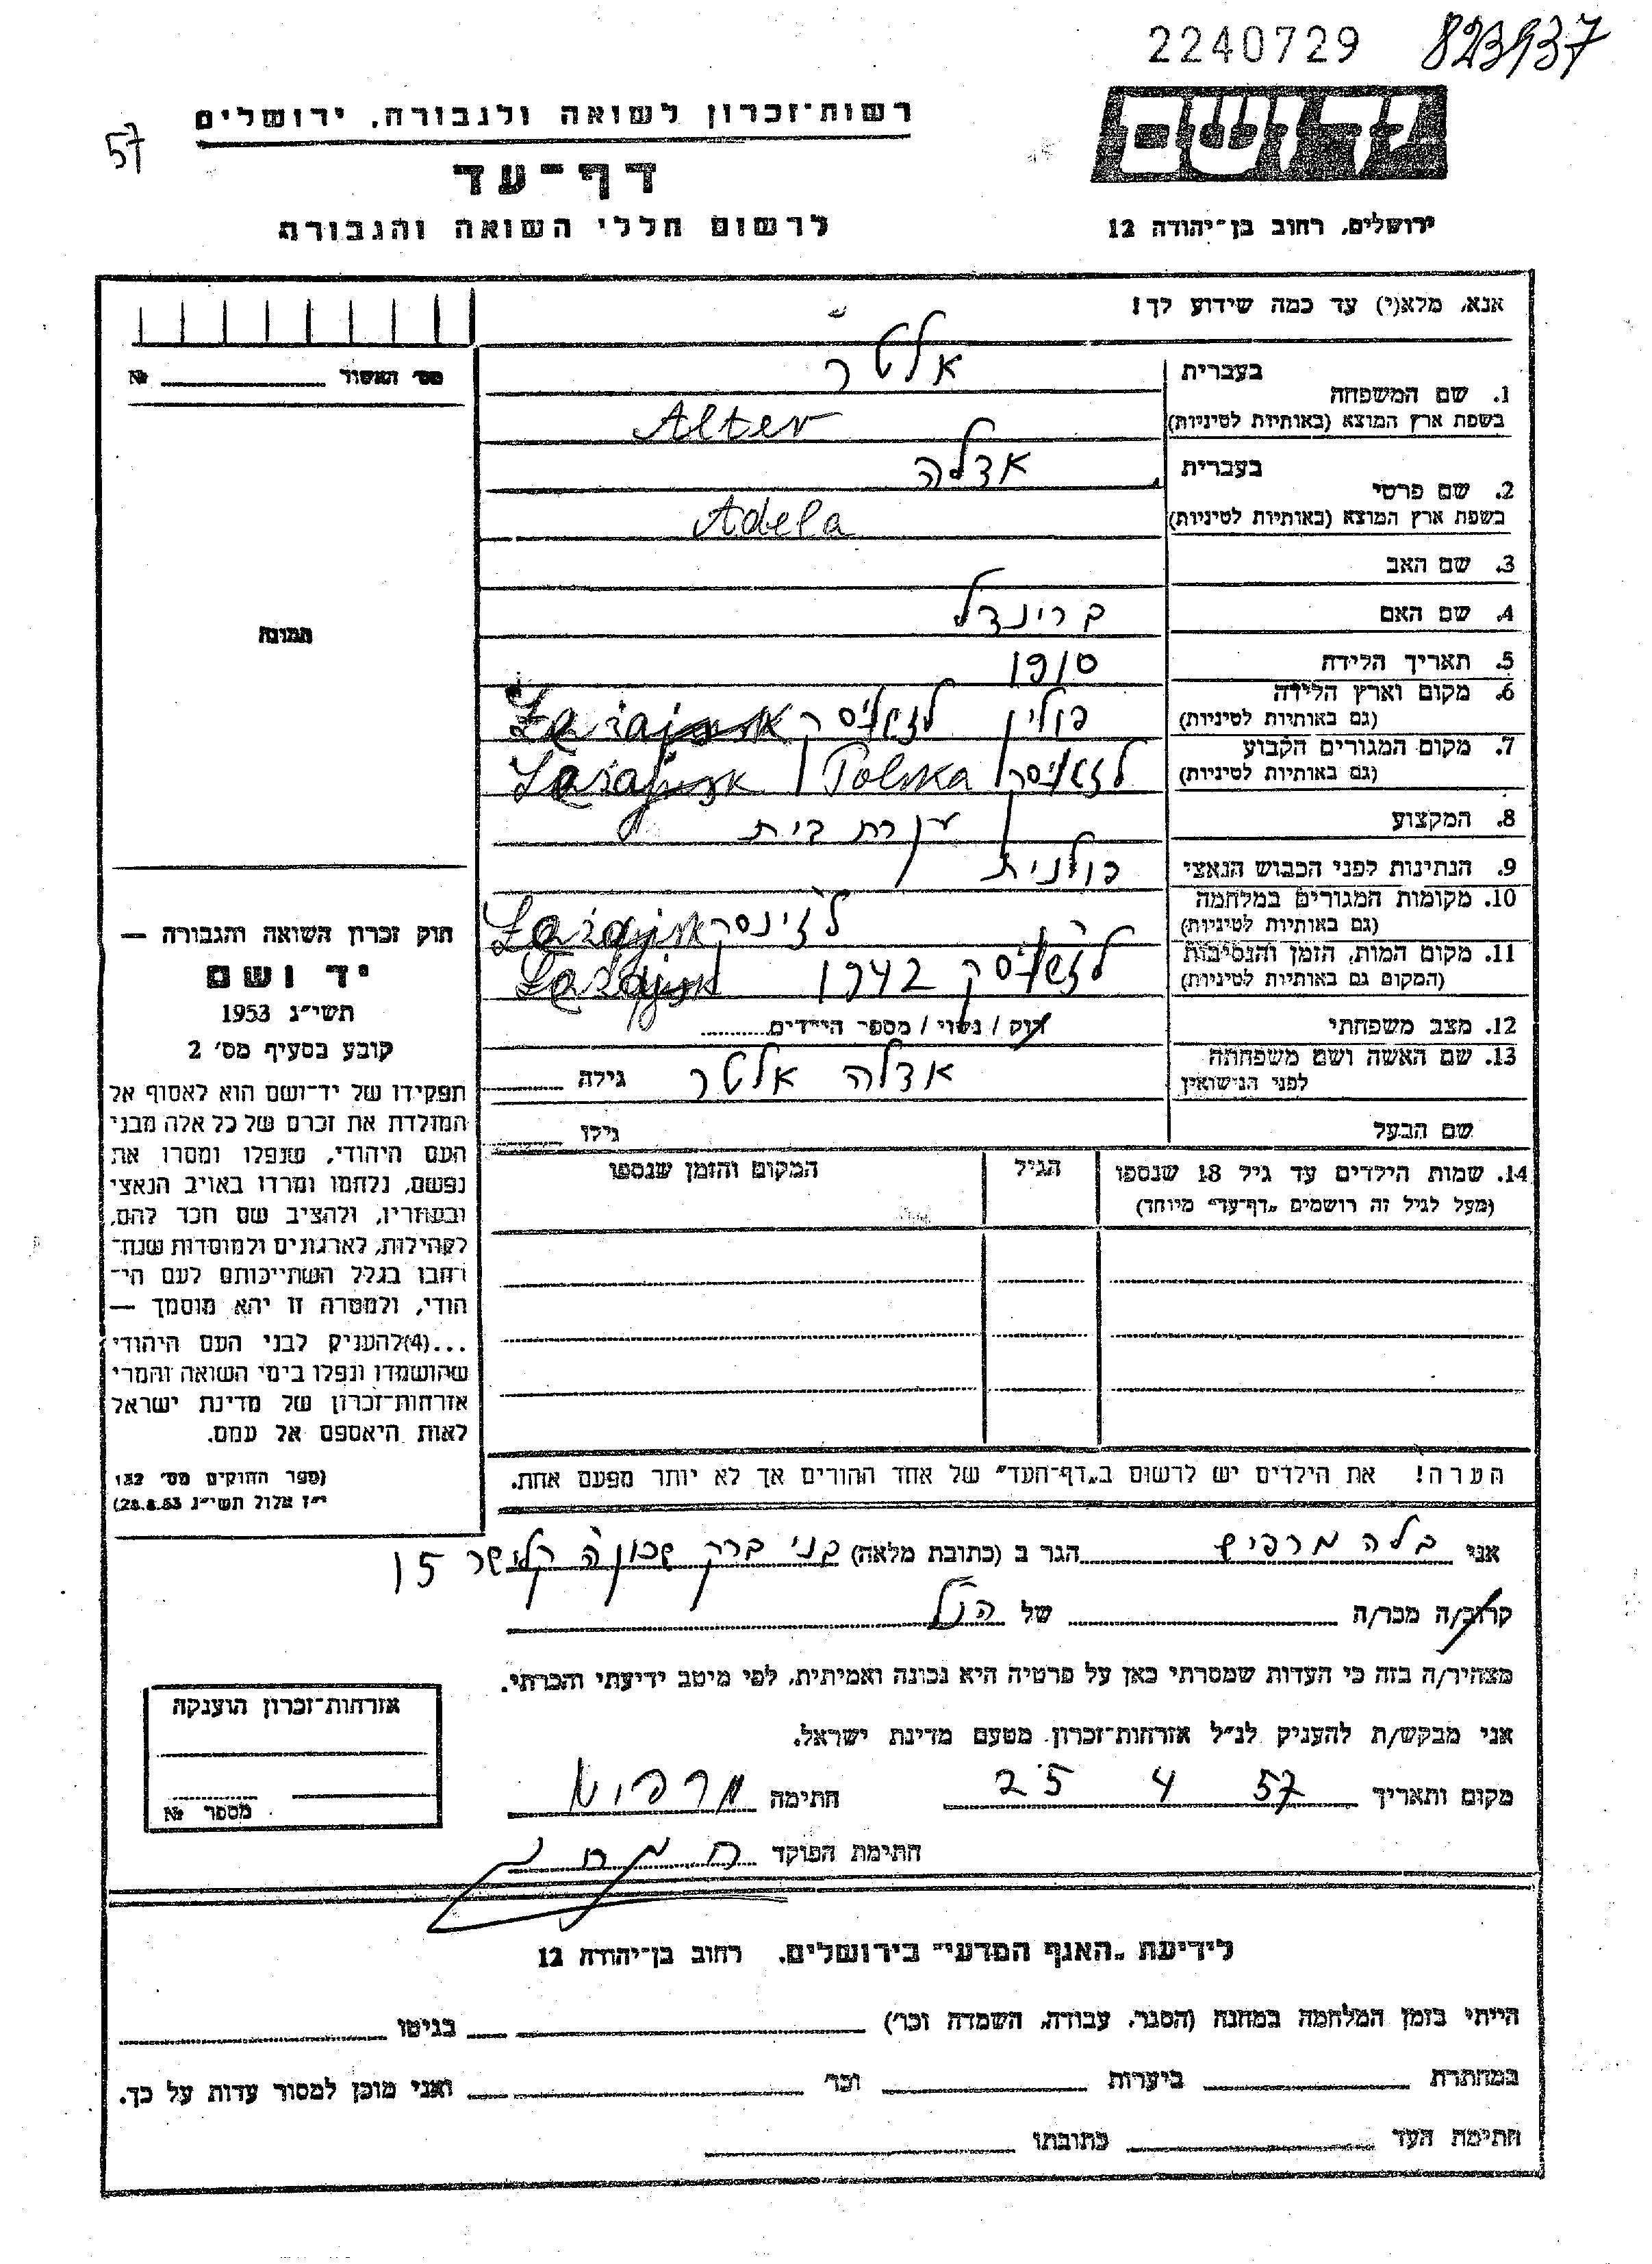 2240729 823937
57
יד ושם
רשות־זכרון לשואה ולגבורה, ירושלים
דף־עד
לרשום חללי השואה והגבורה
ירושלים, רחוב בן־יהודה 12
אנא, מלא(י) עד כמה שידוע לך!
מס׳ האשור № 
תמונה
1. שם המשפחה בעברית אלטר
בשפת ארץ המוצא (באותיות לטיניות) Alter
2. שם פרטי בעברית אדלה
בשפת ארץ המוצא (באותיות לטיניות) Adela
3. שם האב
4. שם האם ברינדל
5. תאריך הלידה 1910
6. מקום וארץ הלידה (גם באותיות לטיניות) פולין
7. מקום המגורים הקבוע (גם באותיות לטיניות) Polska
8. המקצוע עקרת בית
9. הנתינות לפני הכבוש הנאצי פולנית
10. מקומות המגורים במלחמה (גם באותיות לטיניות)
11. מקום המות, הזמן והנסיבות (המקום גם באותיות לטיניות) 1942
12. מצב משפחתי רוק / נשוי / מספר הילדים
13. שם האשה ושם משפחתה לפני הנישואין אדלה אלטר גילה
שם הבעל גילו
14. שמות הילדים עד גיל 18 שנספו הגיל המקום והזמן שנספו
(מעל לגיל זה רושמים „דף־עד״ מיוחד)
הערה! את הילדים יש לרשום ב„דף־העד״ של אחד ההורים אך לא יותר מפעם אחת.
חוק זכרון השואה והגבורה —
יד ושם
תשי״ג 1953
קובע בסעיף מס׳ 2
תפקידו של יד־ושם הוא לאסוף אל
המולדת את זכרם של כל אלה מבני
העם היהודי, שנפלו ומסרו את
נפשם, נלחמו ומרדו באויב הנאצי
ובעוזריו, ולהציב שם וזכר להם,
לקהילות, לארגונים ולמוסדות שנח־
רבו בגלל השתייכותם לעם הי־
הודי, ולמטרה זו יהא מוסמך —
...(4)להעניק לבני העם היהודי
שהושמדו ונפלו בימי השואה והמרי
אזרחות־זכרון של מדינת ישראל
לאות היאספם אל עמם.
(ספר החוקים מס׳ 132
י״ז אלול תשי״ג 28.8.53)
אני בלה מרפיש הגר ב (כתובת מלאה) בני ברק שכונה 15
קרוב/ה מכר/ה של הנ״ל
מצהיר/ה בזה כי העדות שמסרתי כאן על פרטיה היא נכונה ואמיתית, לפי מיטב ידיעתי והכרתי.
אני מבקש/ת להעניק לנ״ל אזרחות־זכרון מטעם מדינת ישראל.
מקום ותאריך 25 4 57 חתימה
חתימת הפוקד
אזרחות־זכרון הוענקה
מספר №
לידיעת „האגף המדעי״ בירושלים, רחוב בן־יהודה 12
הייתי בזמן המלחמה במחנה (הסגר, עבודה, השמדה וכו׳) בגיטו
במחתרת ביערות וכו׳ ואני מוכן למסור עדות על כך.
חתימת העד כתובתו